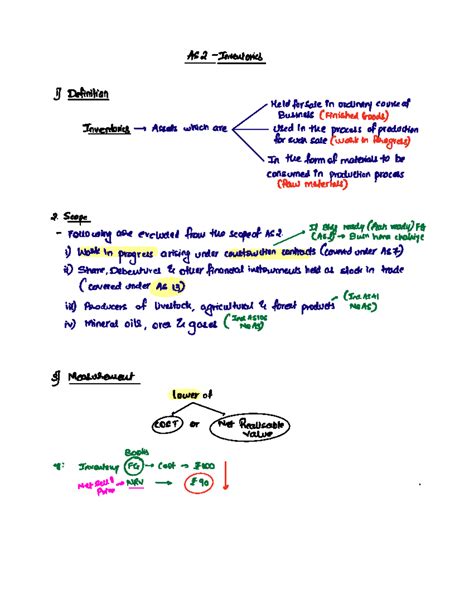 AS 2 - Inventories
1) Definition
Inventories → Assets which are
Held for sale in ordinary course of
Business (Finished Goods)
Used in the process of production
for such sale (Work in Progress)
In the form of materials to be
consumed in production process
(Raw materials)
2. Scope
- Following are excluded from the scope of AS 2.
If Bldg ready FG
(AS 2) →
i) Work in progress arising under construction contracts (covered under AS 7)
ii) Share, Debentures & other financial instruments held as stock in trade
(covered under AS 13)
iii) Producers of livestock, agricultural & forest products (Ind AS 41
No AS)
iv) Mineral oils, ores & gases (Ind AS 106
No AS)
3) Measurement
lower of
COST or Net Realisable
Value
Books
eg: Inventory FG → Cost → ₹100
Net Sell
Price → NRV → ₹90 ↓